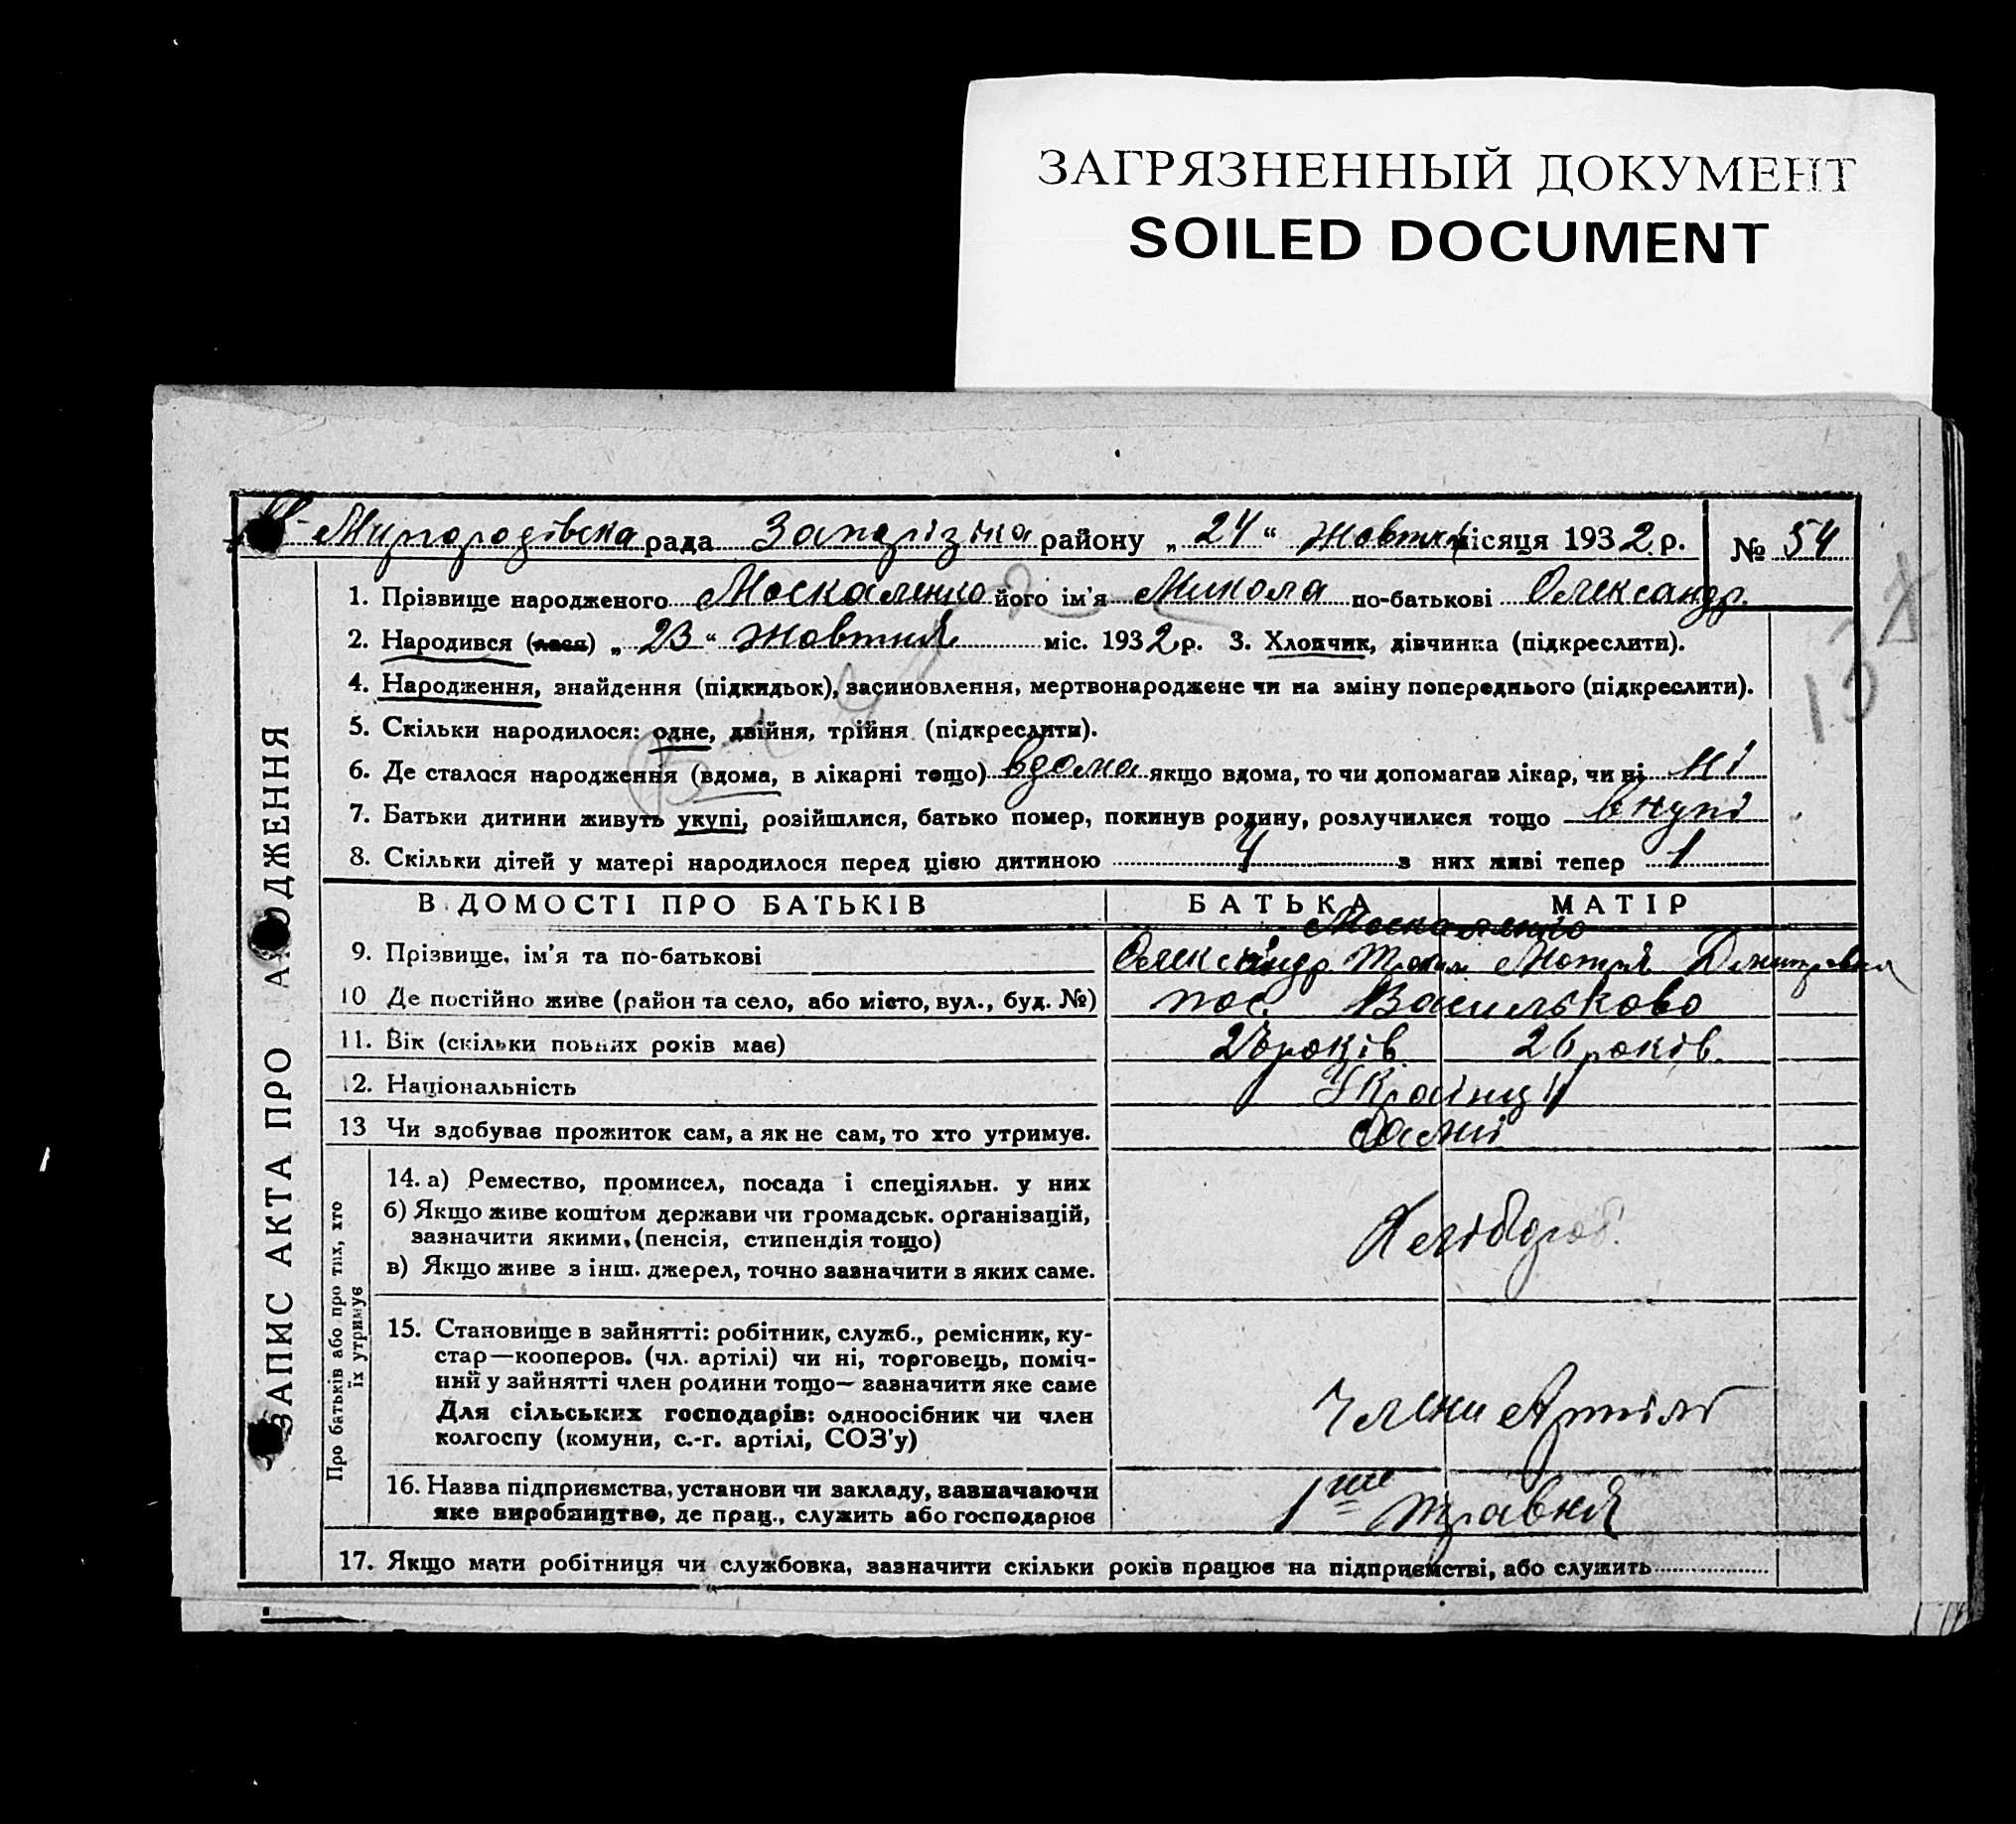 ЗАГРЯЗНЕННЫЙ ДОКУМЕНТ
SOILED DOCUMENT
Миргородівська рада Запорізька району „24“ Жовтня місяця 1932 р. № 54
1. Прізвище народженого Москаленко його ім'я Микола по-батькові Олександр.
2. Народився (лася) „23“ Жовтня міс. 1932 р. 3. Хлопчик, дівчинка (підкреслити).
4. Народження, знайдення (підкидьок), засиновлення, мертвонароджене чи на зміну попереднього (підкреслити).
5. Скільки народилося: одне, двійня, трійня (підкреслити).
6. Де сталося народження (вдома, в лікарні тощо) вдома якщо вдома, то чи допомагав лікар, чи ні ні
7. Батьки дитини живуть укупі, розійшлися, батько помер, покинув родину, розлучилися тощо вкупі
8. Скільки дітей у матері народилося перед цією дитиною 4 з них живі тепер 1
ЗАПИС АКТА ПРО ОДЖЕННЯ
В ДОМОСТІ ПРО БАТЬКІВ БАТЬКА МАТІР
Москаленко
9. Прізвище, ім'я та по-батькові Олександр Мотря Дмитровна
10 Де постійно живе (район та село, або місто, вул., буд. №) пос. Васильково
11. Вік (скільки повних років має) років 26 років
12. Національність Українці
13 Чи здобуває прожиток сам, а як не сам, то хто утримує. Самі
Про батьків або про тих, хто
їх утримує
14. а) Ремество, промисел, посада і спеціяльн. у них
б) Якщо живе коштом держави чи громадськ. організацій,
зазначити якими, (пенсія, стипендія тощо)
Хлібороб.
в) Якщо живе з інш. джерел, точно зазначити з яких саме.
15. Становище в зайнятті: робітник, служб., ремісник, ку-
стар—кооперов. (чл. артілі) чи ні, торговець, поміч-
ний у зайнятті член родини тощо— зазначити яке саме
Для сільських господарів: одноосібник чи член
колгоспу (комуни, с.-г. артілі, СОЗ'у)
Члени Артілі
16. Назва підприємства, установи чи закладу, зазначаючи
яке виробництво, де прац., служить або господарює
1ше травня
17. Якщо мати робітниця чи службовка, зазначити скільки років працює на підприємстві, або служить